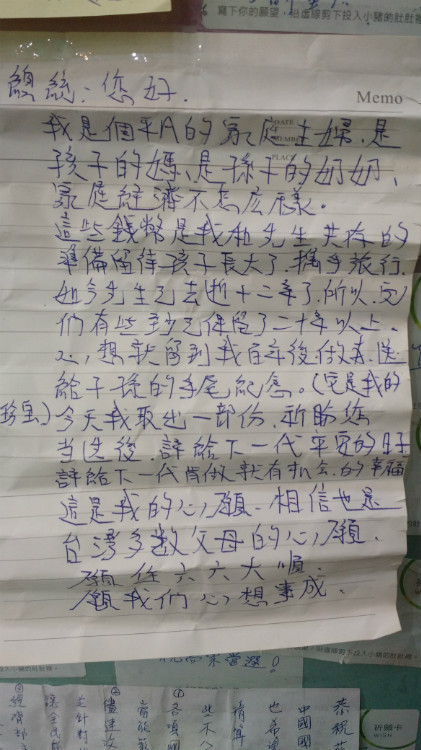 寫下你的願望，沿虛線剪下投入小豬的肚肚裡
Memo
DATE
NUMBER
PLACE
總統：您好．
我是個平凡的家庭主婦、是
孩子的媽、是孫子的奶奶、
家庭經濟不怎麼樣。
這些錢幣是我和先生共存的
準備留待孩子長大了．攜手旅行．
如今先生已去逝十二年了．所以．它
們有些至少已保留了二十年以上．
想就留到我百年後做為送
給子孫的手尾紀念。（它是我的
珍寶）今天我取出一部份．祈盼您
當選後．許給下一代平安的日子
許給下一代肯做就有机会的幸福
這是我的心願．相信也是
台灣多數父母的心願．
願 你六六大順．
願我們心想事成．
祈願卡
WISH